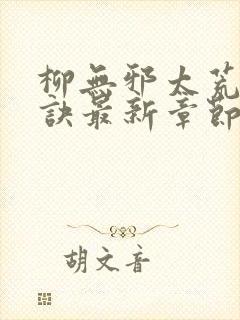 柳無邪太荒
訣最新章節
胡文音